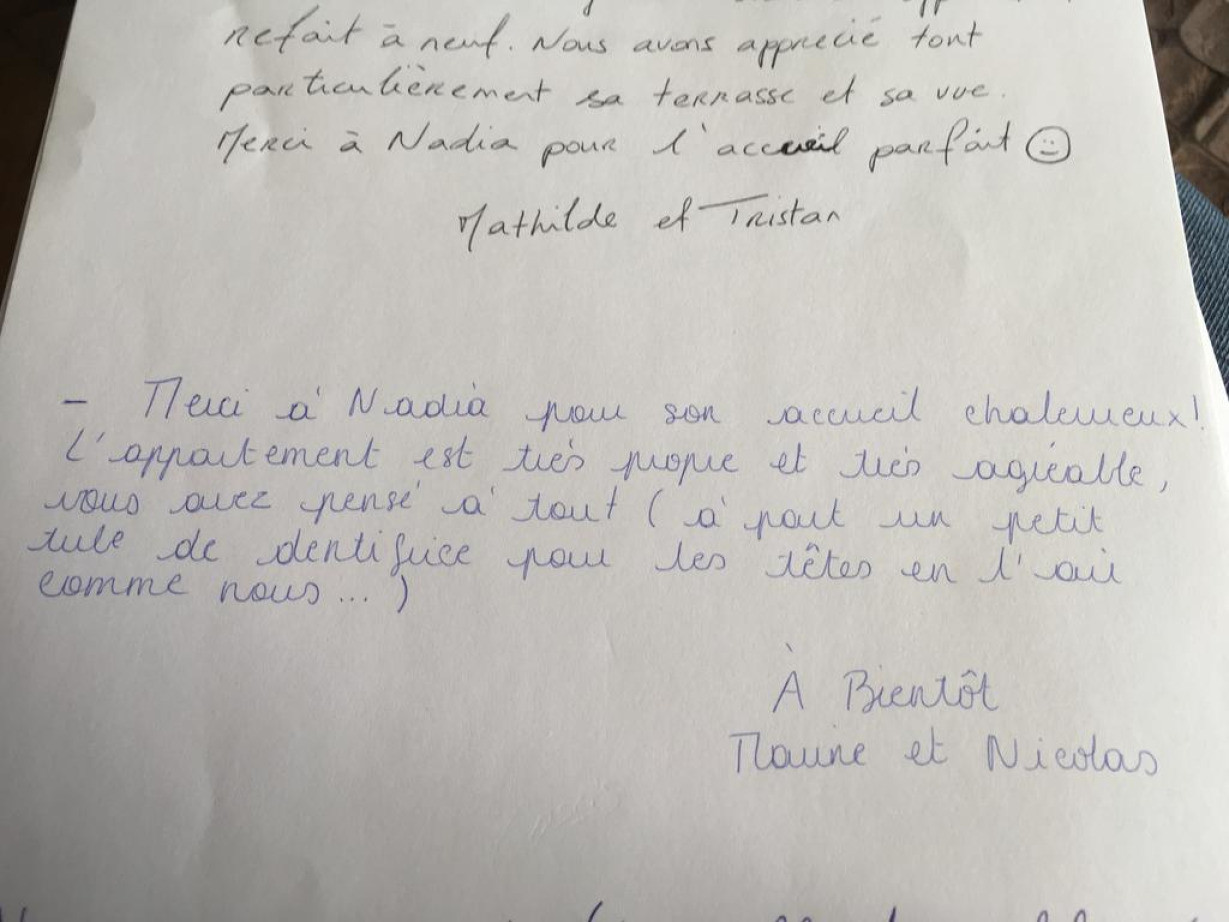 refait à neuf. Nous avons apprécié tout
particulièrement sa terrasse et sa vue.
Merci à Nadia pour l'accueil parfait
Mathilde et Tristan
- Merci à Nadia pour son accueil chaleureux!
L'appartement est très propre et très agréable,
vous avez pensé à tout (à part un petit
tube de dentifrice pour les têtes en l'air
comme nous...)
À Bientôt
et Nicolas